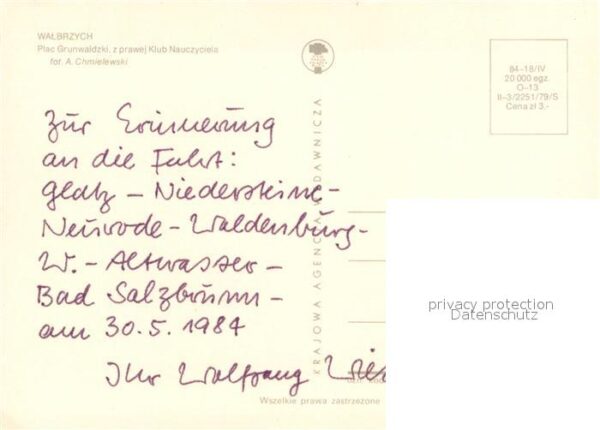 WAŁBRZYCH
Plac Grunwaldzki, z prawej Klub Nauczyciela
fot. A. Chmielewski
84-18/IV
20 000 egz.
O-13
II-3/2251/79/S
Cena zł 3.-
KRAJOWA AGENCJA WYDAWNICZA
Zur Erinnerung
an die Fahrt:
Glatz - Niedersteine-
Neurode - Waldenburg-
W. - Altwasser -
Bad Salzbrunn -
am 30.5.1984
Ihr Wolfgang
Wszelkie prawa zastrzeżone
privacy protection
Datenschutz